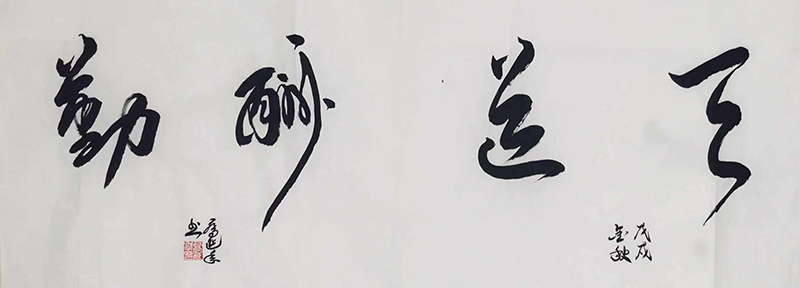 天道酬勤
戊戌
金秋
书